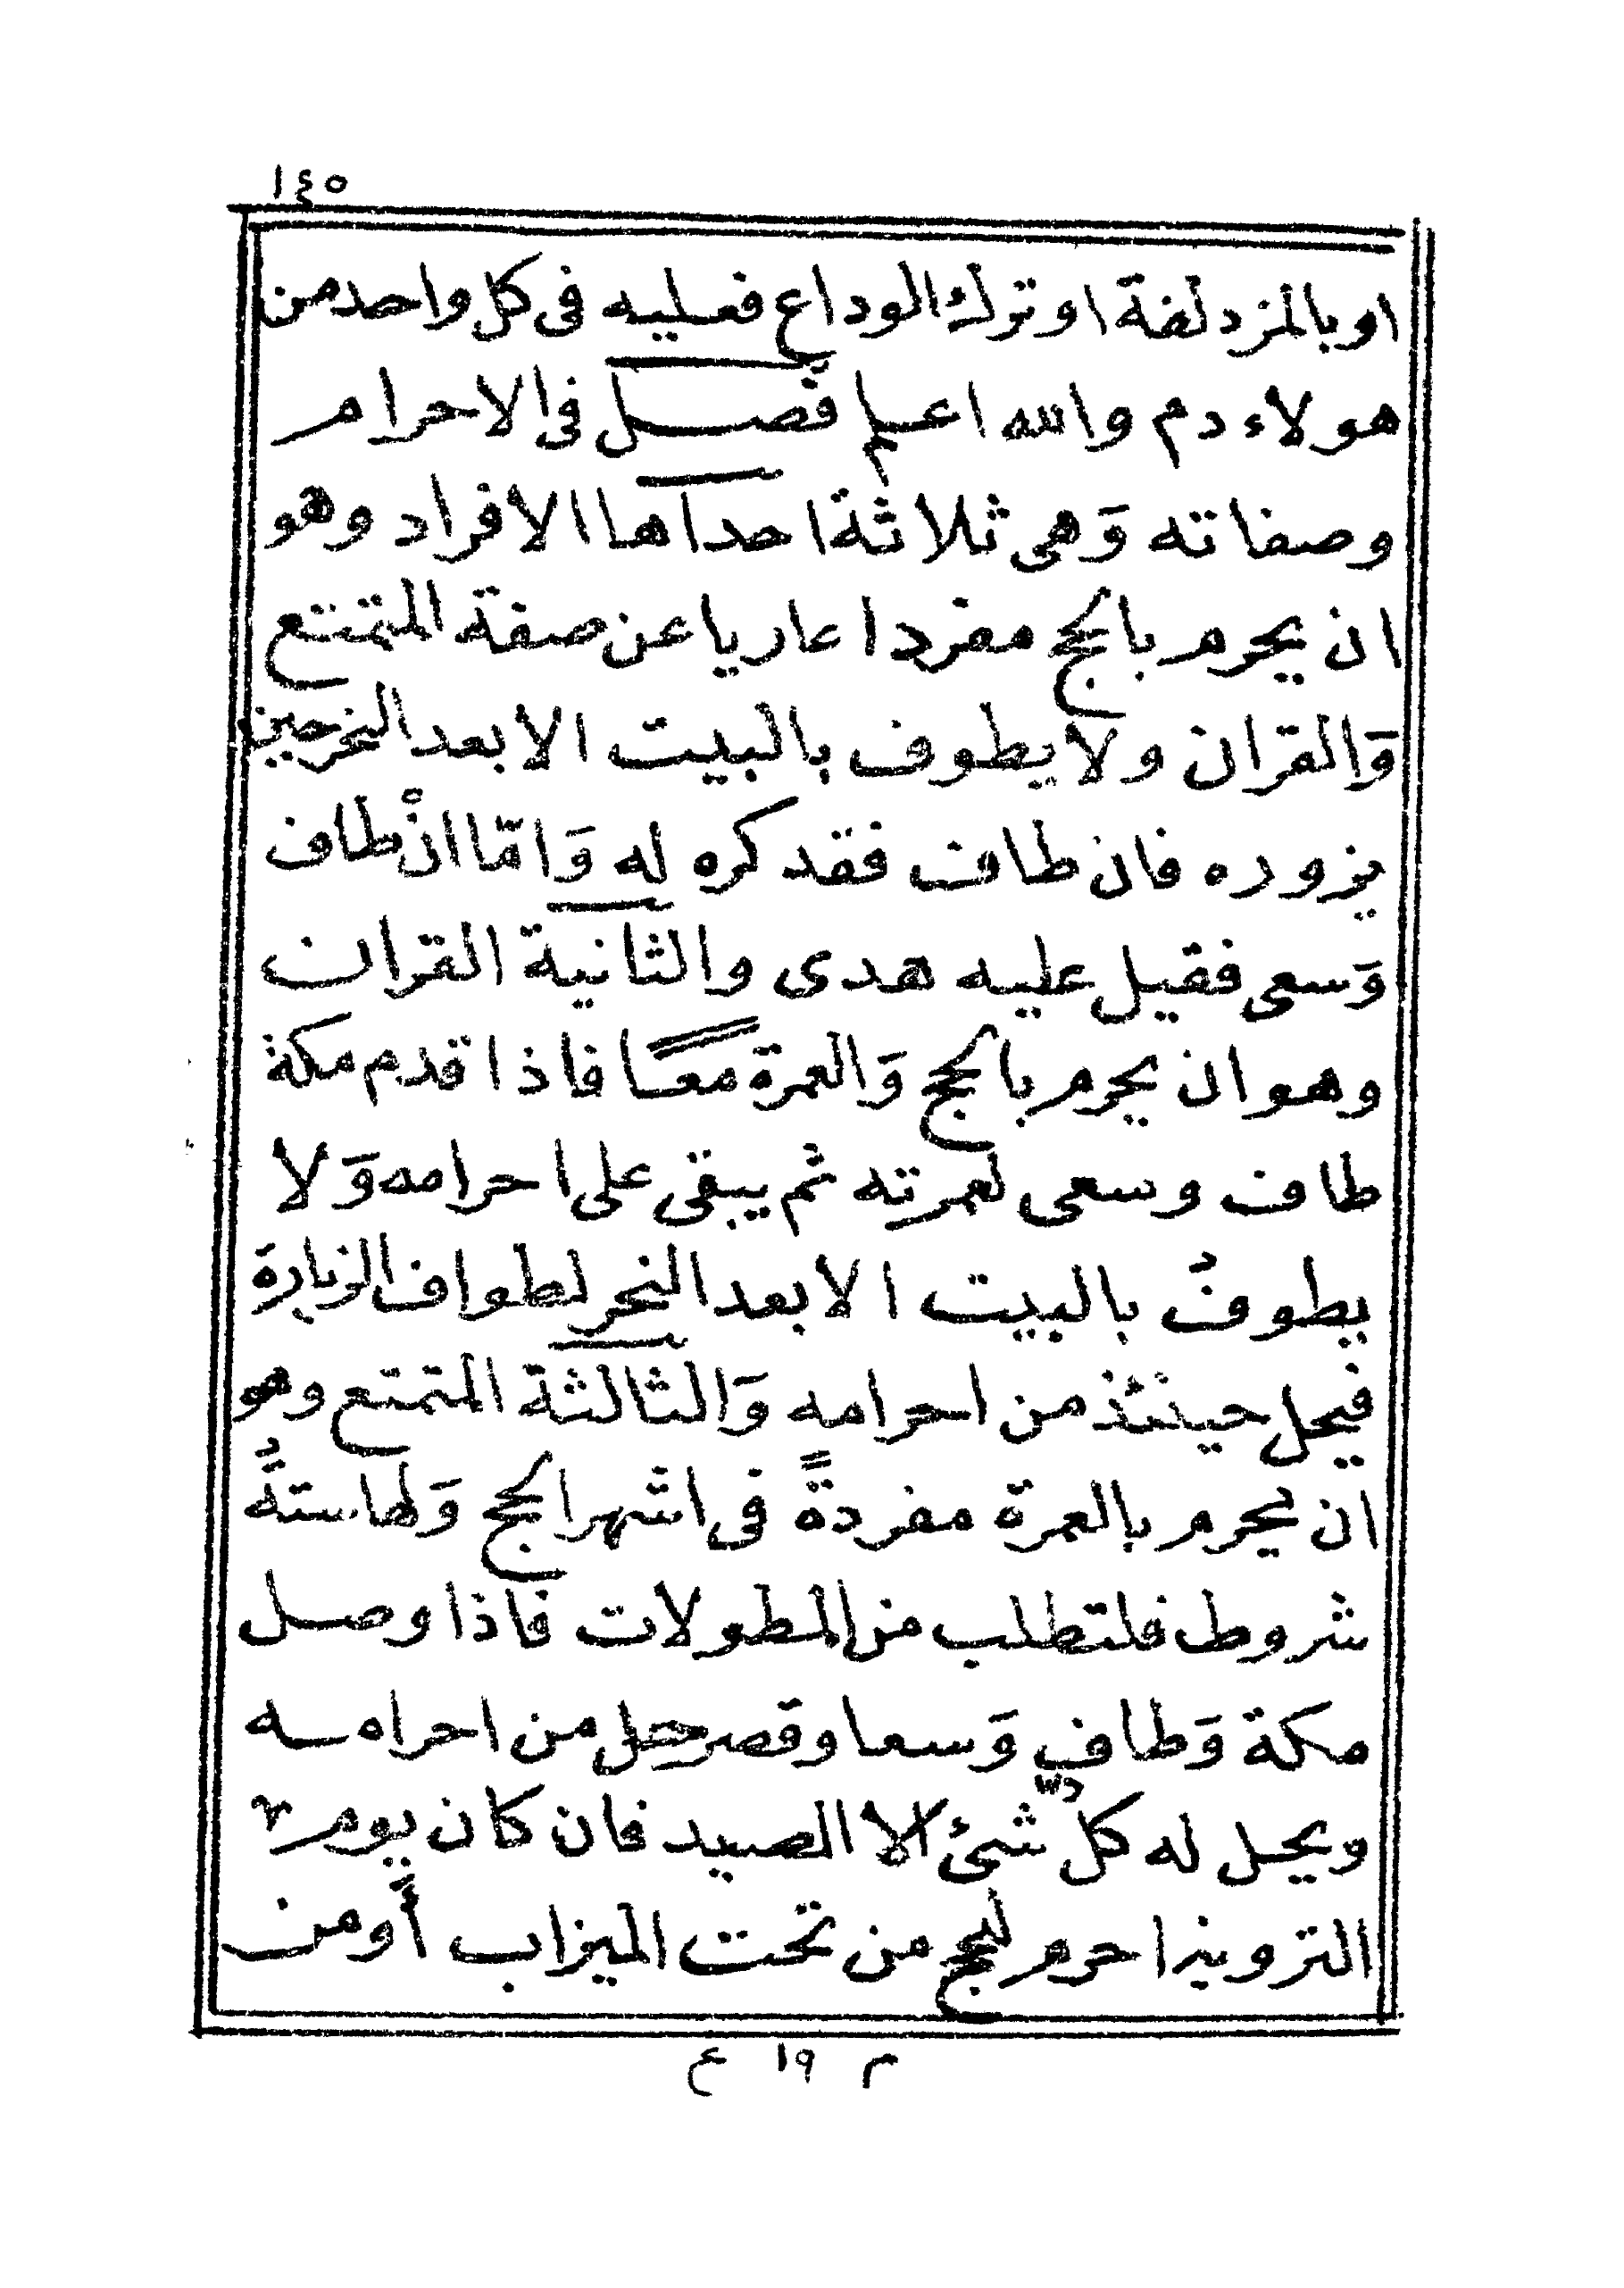 ١٤٥
او بالمزدلفة او ترك الوداع فعليه فى كل واحد من
هولاء دم والله اعلم فصل فى الاحرام
وصفاته وَهى ثلاثة احداها الافراد وهو
ان يحرم بالحج مفردا عاريا عن صفة المتمتع
وَالقران ولا يطوف بالبيت الا بعد النحر حين
يزوره فان طاف فقد كره له وَامّا انْ طاف
وَسعى فقيل عليه هدى والثانية القران
وهو ان يحرم بالحج وَالعمرة معًا فاذا قدم مكة
طاف وسعى لعمرته ثم يبقى على احرامه وَلا
يطوفُ بالبيت الا بعد النحر لطواف الزيارة
فيحل حينئذ من احرامه وَالثالثة المتمتع وهو
ان يحرم بالعمرة مفردةً فى اشهر الحج وَلها ستةُ
شروط فلتطلب من المطولات فاذا وصل
مكة وَطاف وَسعا وقصر حل من احرامه
ويحل له كل شئ الا الصيد فان كان يوم
التروية احرم لحج من تحت الميزاب أَو من
م ١٩ ع